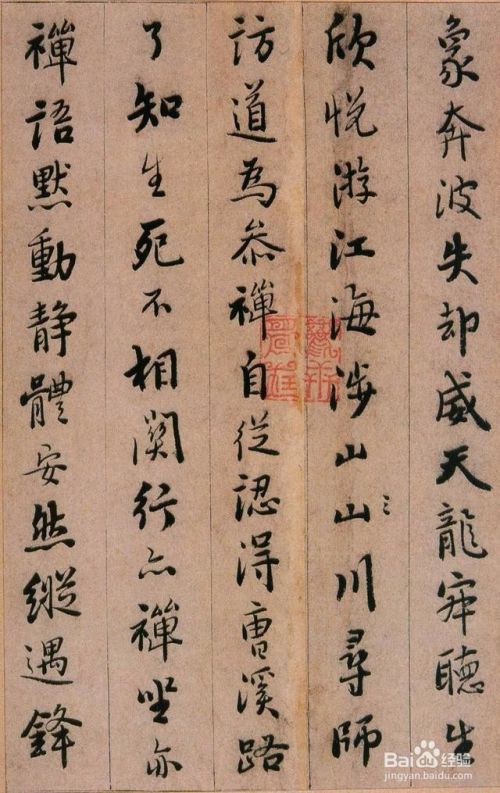 象奔波失却威天龍寂聽生
欣悅游江海涉山山川尋師
訪道為叅禪自從認得曹溪路
了知生死不相關行亦禪坐亦
禪語默動靜體安然縱遇鋒
Bai 经验
jingyan.baidu.com